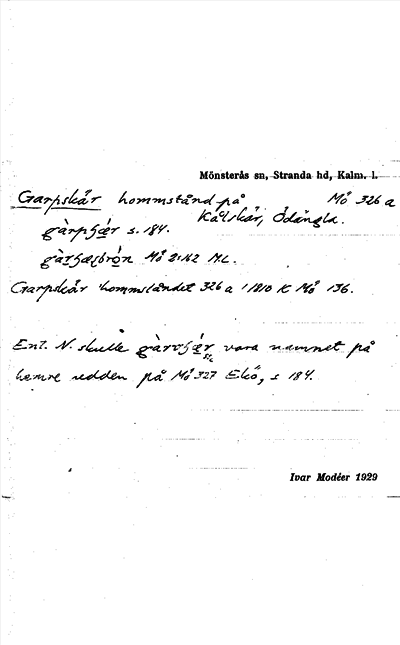 Mönsterås sn, Stranda hd, Kalm. l.
Garpskär hommstånd på Mö 326 a
Kalvskär, Ödängla.
gàrpʃær s. 184.
Mö 2:162 ML.
Garpskär hommståndet 326 a 1810 K Mö 136.
Enl. N. skulle gàrvʃær vara namnet på
hemre redden på Mö 327 Ekö, s 184.
Ivar Modéer 1929